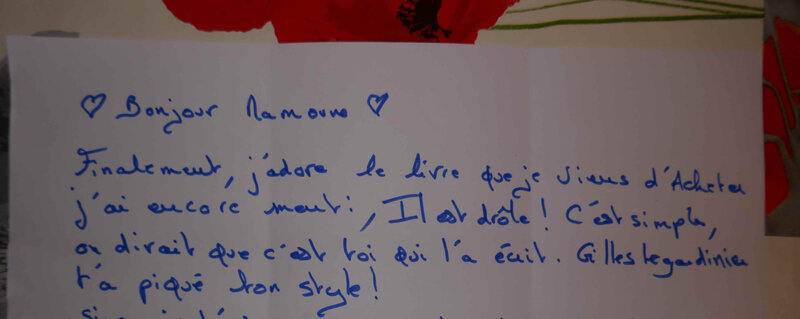 ♡ Bonjour Mamoune ♡
Finalement, j'adore le livre que je viens d'Acheter
j'ai encore menti, Il est drôle! C'est simple,
on dirait que c'est toi qui l'a écrit. Gilles Legardinier
t'a piqué ton style!